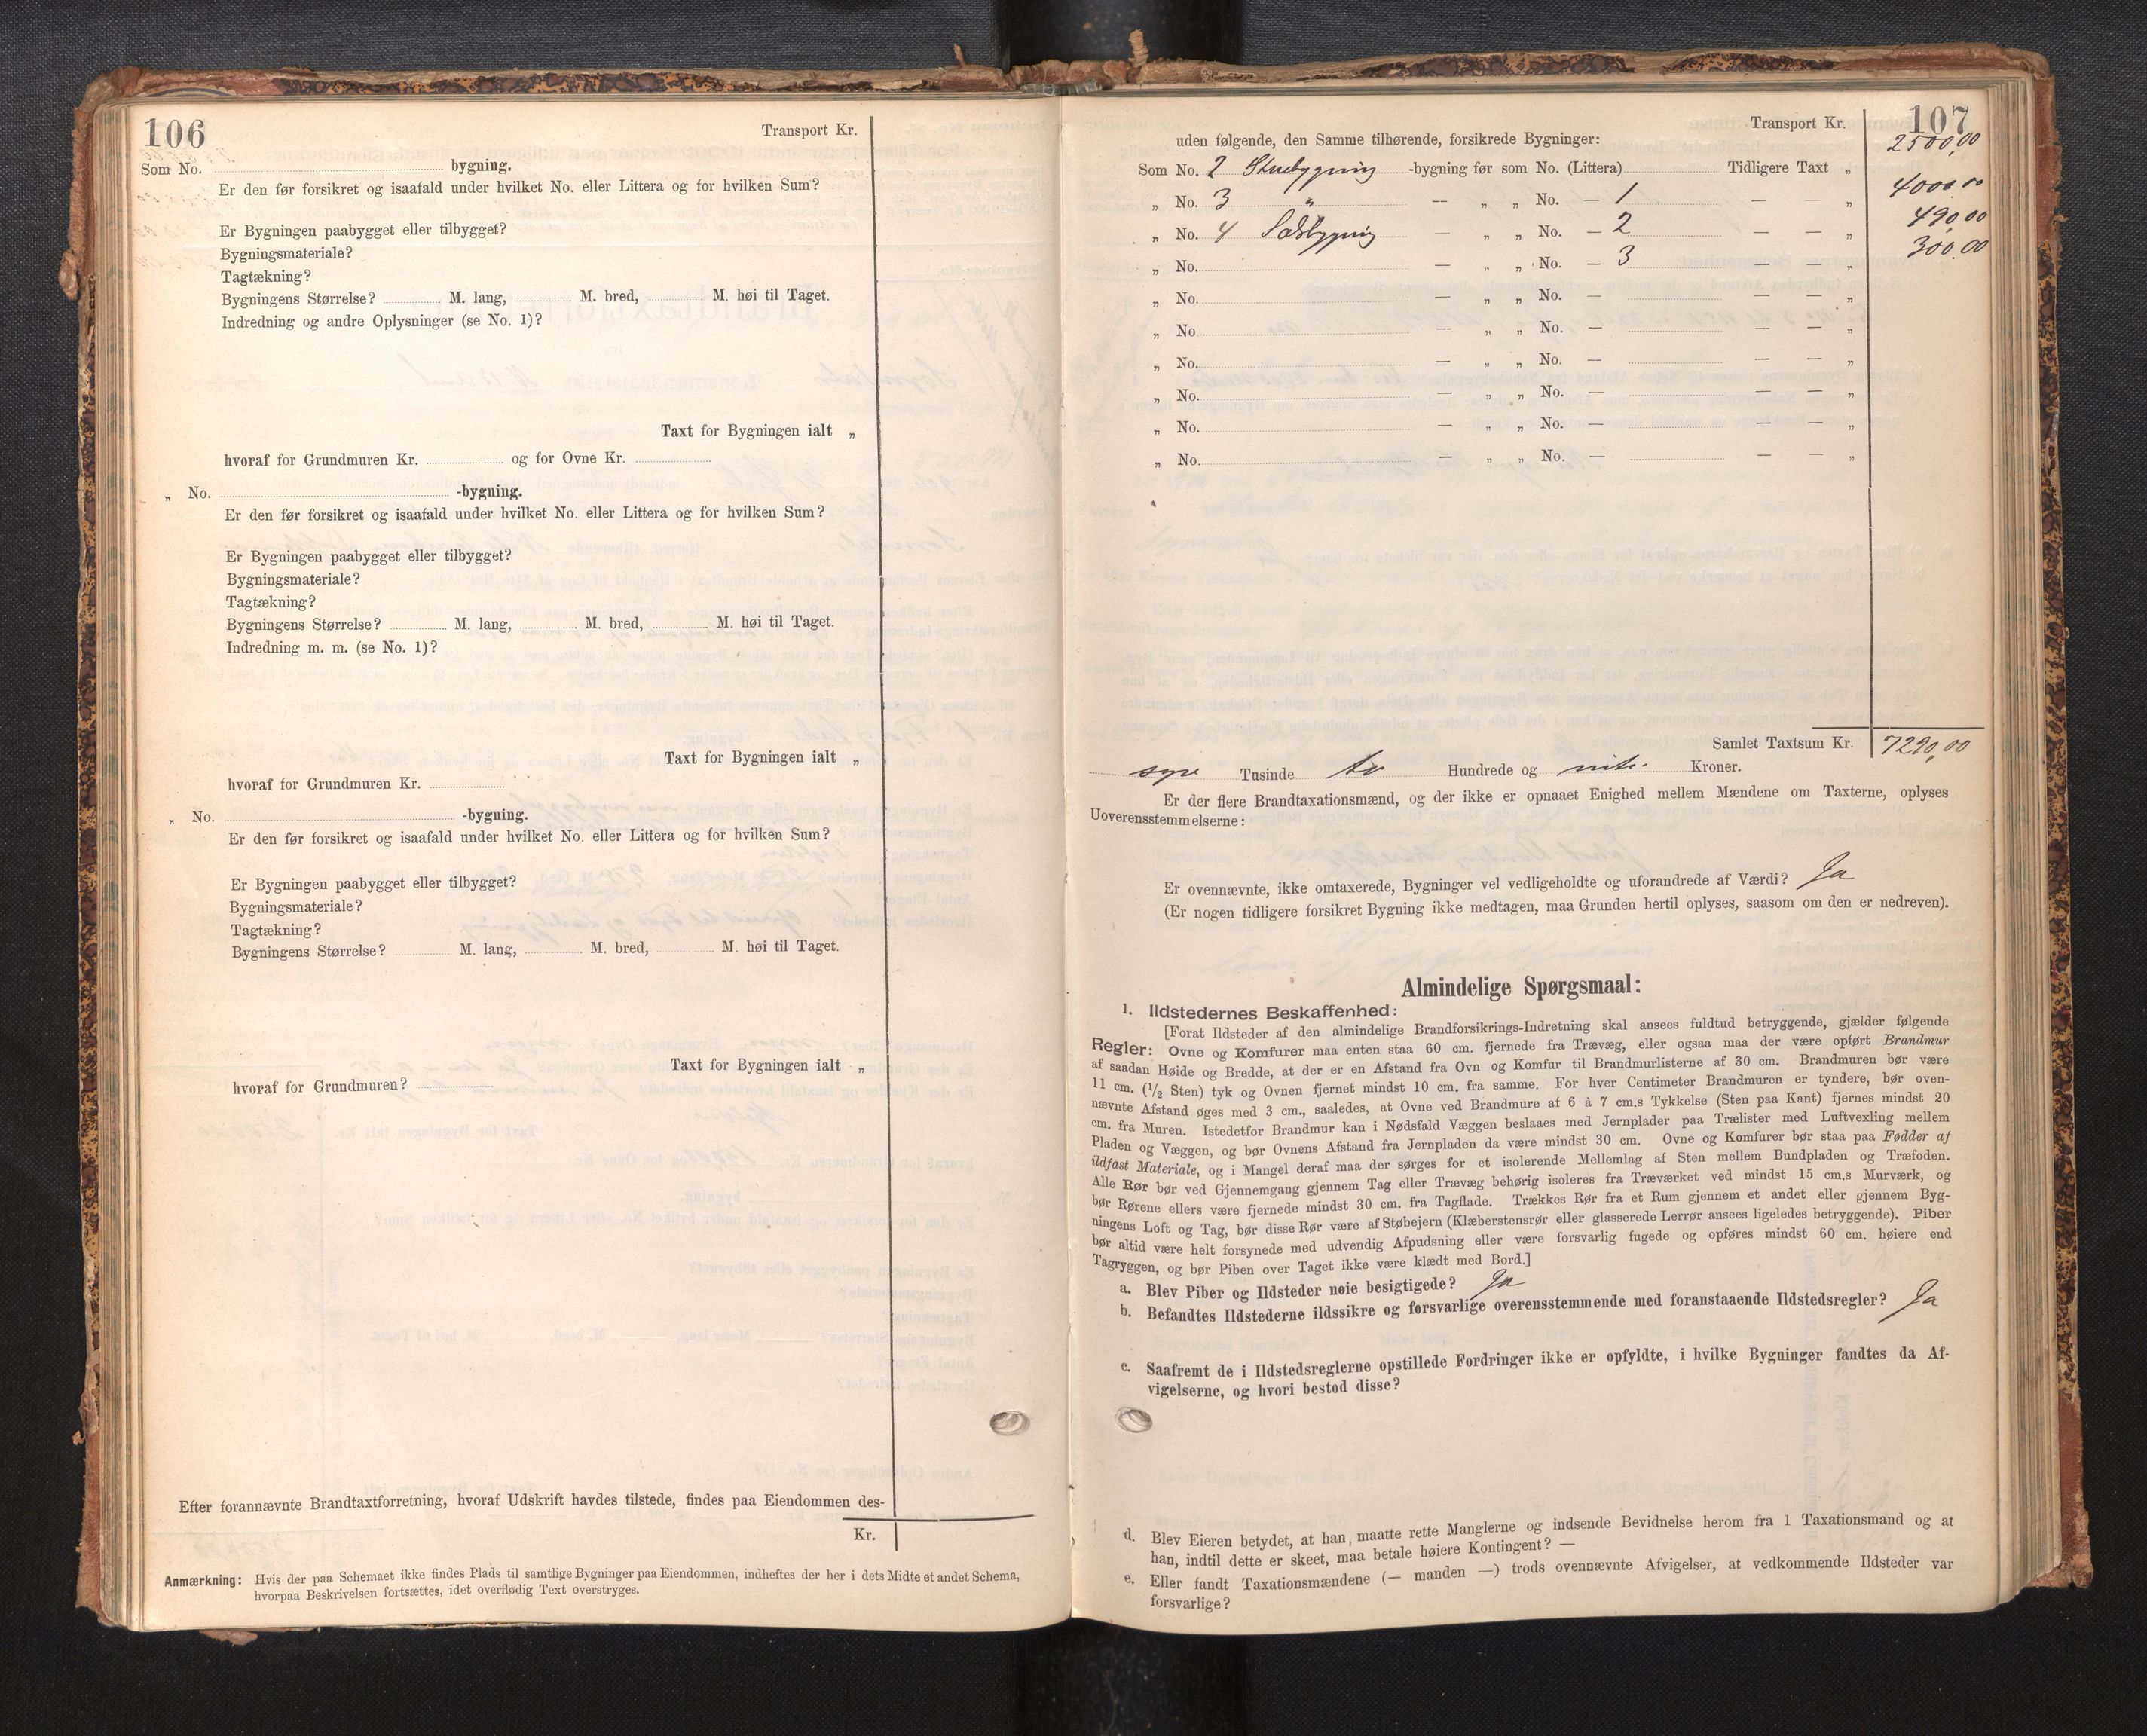 106
Transport Kr.
Som No. bygning.
Er den før forsikret og isaafald under hvilket No. eller Littera og for hvilken Sum?
Er Bygningen paabygget eller tilbygget?
Bygningsmateriale?
Tagtækning?
Bygningens Størrelse? M. lang, M. bred, M. høi til Taget.
Indredning og andre Oplysninger (se No. 1)?
Taxt for Bygningen ialt „
hvoraf for Grundmuren Kr. og for Ovne Kr.
„ No. -bygning.
Er den før forsikret og isaafald under hvilket No. eller Littera og for hvilken Sum?
Er Bygningen paabygget eller tilbygget?
Bygningsmateriale?
Tagtækning?
Bygningens Størrelse? M. lang, M. bred, M. høi til Taget.
Indredning m. m. (se No. 1)?
Taxt for Bygningen ialt „
hvoraf for Grundmuren Kr.
„ No. -bygning.
Er den før forsikret og isaafald under hvilket No. eller Littera og for hvilken Sum?
Er Bygningen paabygget eller tilbygget?
Bygningsmateriale?
Tagtækning?
Bygningens Størrelse? M. lang, M. bred, M. høi til Taget.
Taxt for Bygningen ialt „
hvoraf for Grundmuren?
Efter forannævnte Brandtaxtforretning, hvoraf Udskrift havdes tilstede, findes paa Eiendommen des-
Kr.
Anmærkning: Hvis der paa Schemaet ikke findes Plads til samtlige Bygninger paa Eiendommen, indheftes der her i dets Midte et andet Schema,
hvorpaa Beskrivelsen fortsættes, idet overflødig Text overstryges.
107
Transport Kr. 2500,00
uden følgende, den Samme tilhørende, forsikrede Bygninger:
Som No. 2 Stuebygning -bygning før som No. (Littera) 1 Tidligere Taxt „ 4000 00
„ No. 3 " — „ „ No. — 2 — — „ 490,00
„ No. 4 — „ „ No. — 3 — — „ 300,00
„ No. — „ „ No. — — — „
„ No. — „ „ No. — — — „
„ No. — „ „ No. — — — „
„ No. — „ „ No. — — — „
„ No. — „ „ No. — — — „
„ No. — „ „ No. — — — „
„ No. — „ „ No. — — — „
Samlet Taxtsum Kr. 7290,00
syv Tusinde to Hundrede og niti Kroner.
Er der flere Brandtaxationsmænd, og der ikke er opnaaet Enighed mellem Mændene om Taxterne, oplyses
Uoverensstemmelserne:
Er ovennævnte, ikke omtaxerede, Bygninger vel vedligeholdte og uforandrede af Værdi? Ja
(Er nogen tidligere forsikret Bygning ikke medtagen, maa Grunden hertil oplyses, saasom om den er nedreven).
Almindelige Spørgsmaal:
1. Ildstedernes Beskaffenhed:
[Forat Ildsteder af den almindelige Brandforsikrings-Indretning skal ansees fuldtud betryggende, gjælder følgende
Regler: Ovne og Komfurer maa enten staa 60 cm. fjernede fra Trævæg, eller ogsaa maa der være opført Brandmur
af saadan Høide og Bredde, at der er en Afstand fra Ovn og Komfur til Brandmurlisterne af 30 cm. Brandmuren bør være
11 cm. (1/2 Sten) tyk og Ovnen fjernet mindst 10 cm. fra samme. For hver Centimeter Brandmuren er tyndere, bør oven-
nævnte Afstand øges med 3 cm., saaledes, at Ovne ved Brandmure af 6 à 7 cm.s Tykkelse (Sten paa Kant) fjernes mindst 20
cm. fra Muren. Istedetfor Brandmur kan i Nødsfald Væggen beslaaes med Jernplader paa Trælister med Luftvexling mellem
Pladen og Væggen, og bør Ovnens Afstand fra Jernpladen da være mindst 30 cm. Ovne og Komfurer bør staa paa Fødder af
ildfast Materiale, og i Mangel deraf maa der sørges for et isolerende Mellemlag af Sten mellem Bundpladen og Træfoden.
Alle Rør bør ved Gjennemgang gjennem Tag eller Trævæg behørig isoleres fra Træværket ved mindst 15 cm.s Murværk, og
bør Rørene ellers være fjernede mindst 30 cm. fra Tagflade. Trækkes Rør fra et Rum gjennem et andet eller gjennem Byg-
ningens Loft og Tag, bør disse Rør være af Støbejern (Klæberstensrør eller glasserede Lerrør ansees ligeledes betryggende). Piber
bør altid være helt forsynede med udvendig Afpudsning eller være forsvarlig fugede og opføres mindst 60 cm. høiere end
Tagryggen, og bør Piben over Taget ikke være klædt med Bord.]
a. Blev Piber og Ildsteder nøie besigtigede? Ja
b. Befandtes Ildstederne ildssikre og forsvarlige overensstemmende med foranstaaende Ildstedsregler? Ja
c. Saafremt de i Ildstedsreglerne opstillede Fordringer ikke er opfyldte, i hvilke Bygninger fandtes da Af-
vigelserne, og hvori bestod disse?
d. Blev Eieren betydet, at han, maatte rette Manglerne og indsende Bevidnelse herom fra 1 Taxationsmand og at
han, indtil dette er skeet, maa betale høiere Kontingent? —
e. Eller fandt Taxationsmændene (— manden —) trods ovennævnte Afvigelser, at vedkommende Ildsteder var
forsvarlige?